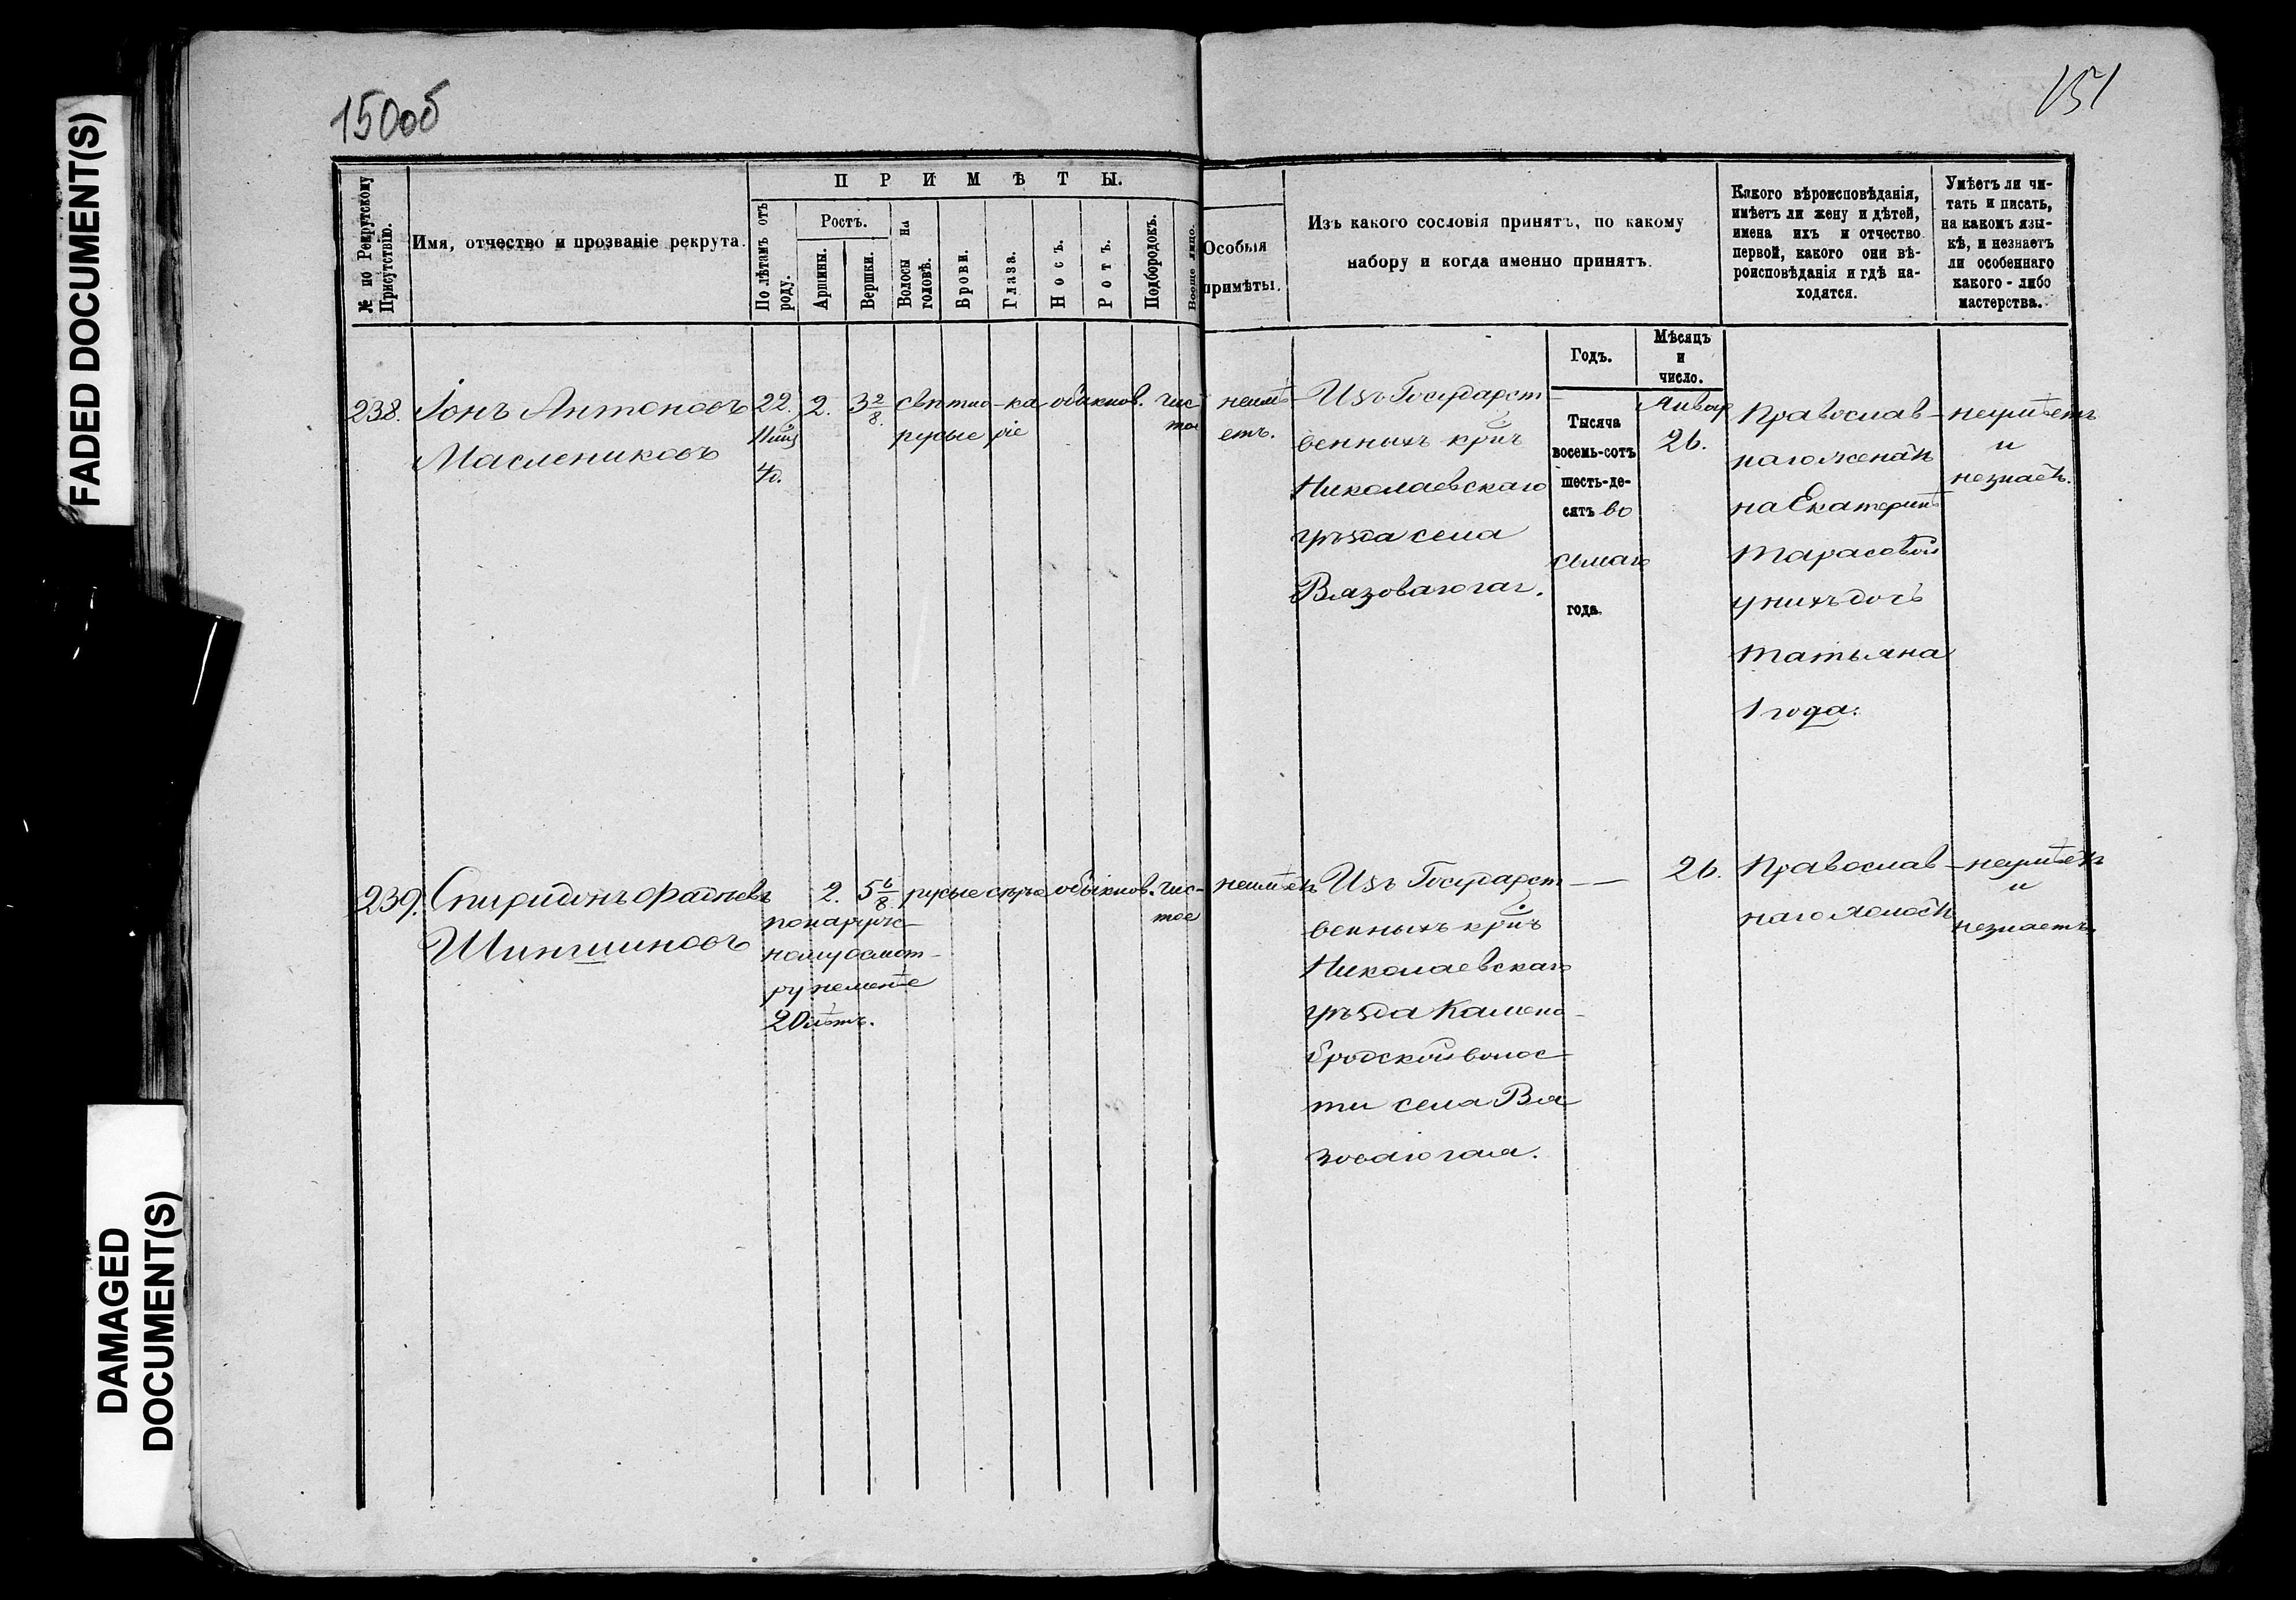 FADED DOCUMENT(S)
DAMAGED
DOCUMENT(S)
150об
151
№ по Рекрутскому
Присутствію.
Имя, отчество и прозваніе рекрута.
ПРИМѢТЫ.
По лѣтамъ отъ
роду.
Ростъ.
Аршины.
Вершки.
Волосы на
головѣ.
Брови.
Глаза.
Носъ.
Ротъ.
Подбородокъ.
Вообще лицо.
Особыя
примѣты.
Изъ какого сословія принятъ, по какому
набору и когда именно принятъ.
Какого вѣроисповѣданія,
имѣетъ ли жену и дѣтей,
имена ихъ и отчество
первой, какого они вѣ-
роисповѣданія и гдѣ на-
ходятся.
Умѣетъ ли чи-
тать и писать,
на какомъ язы-
кѣ, и незнаетъ
ли особеннаго
какого-либо
мастерства.
Годъ.
Мѣсяцъ
и
число.
238.
Іонъ Антоновъ
Маслениковъ
22.
4д.
2.
3 2/8
свѣтло-
русые
ка
ріе
обыкнов.
чис
тое
неимѣ
етъ.
Изъ Государст
венныхъ крнъ
Николаевскаго
уѣзда села
Вязоваго гая.
Тысяча
восемь-сотъ
шесть-де-
сятъ во
семаго
года.
Январ
26.
Православ-
наго женатъ
на Екатеринѣ
Тарасовой
у нихъ дочь
Татьяна
1 года.
неумѣетъ
и
незнаетъ.
239.
Спиридонъ Фадѣевъ
Шингшиновъ
по наруж-
ному осмот-
ру неменѣе
20 лѣтъ.
2.
5 6/8
русые
сѣрые
обыкнов.
чис-
тое
неимѣетъ
Изъ Государст
венныхъ крнъ
Николаевскаго
уѣзда Камено-
бродской волос-
ти села Вя
зоваго гая.
26.
Православ-
наго холостъ
неумѣетъ
и
незнаетъ.